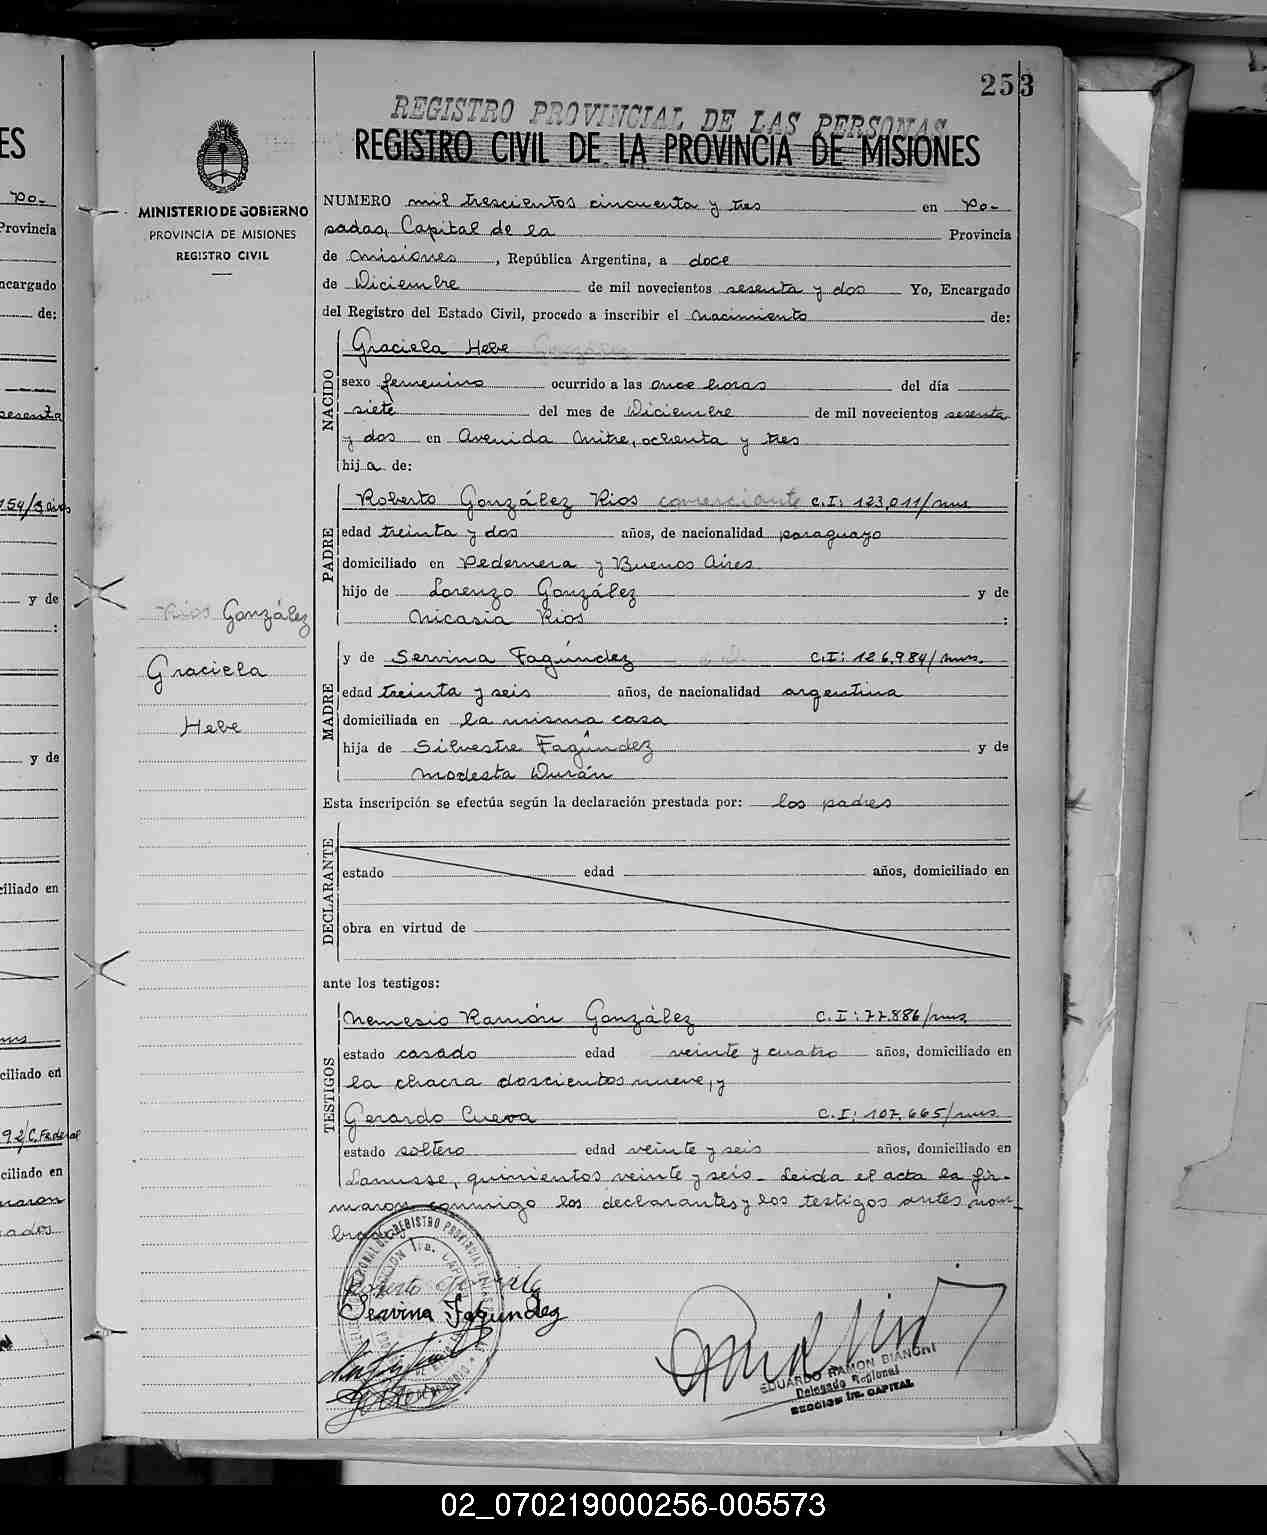 253
REGISTRO PROVINCIAL DE LAS PERSONAS
REGISTRO CIVIL DE LA PROVINCIA DE MISIONES
MINISTERIO DE GOBIERNO
PROVINCIA DE MISIONES
REGISTRO CIVIL
Rios González
Graciela
Hebe
NUMERO mil trescientos cincuenta y tres en Po-
sadas, Capital de la Provincia
de Misiones, República Argentina, a doce
de Diciembre de mil novecientos sesenta y dos Yo, Encargado
del Registro del Estado Civil, procedo a inscribir el nacimiento de:
NACIDO
Graciela Hebe González
sexo femenino ocurrido a las once horas del día
siete del mes de Diciembre de mil novecientos sesenta
y dos en Avenida Mitre, ochenta y tres
hija de:
PADRE
Roberto González Rios comerciante C.I: 123,011/mns
edad treinta y dos años, de nacionalidad paraguayo
domiciliado en Pedernera y Buenos Aires
hijo de Lorenzo González y de
Nicasia Rios :
MADRE
y de Servina Fagúndez C.I: 126,984/mns.
edad treinta y seis años, de nacionalidad argentina
domiciliada en la misma casa
hija de Silvestre Fagúndez y de
Modesta Durán
Esta inscripción se efectúa según la declaración prestada por: los padres
DECLARANTE
estado edad años, domiciliado en
obra en virtud de
ante los testigos:
TESTIGOS
Nemesio Ramón González C.I: 77.886/mns
estado casado edad veinte y cuatro años, domiciliado en
la chacra doscientos nueve, y
Gerardo Cueva C.I: 107,665/mns
estado soltero edad veinte y seis años, domiciliado en
Lanusse, quinientos veinte y seis- Leida el acta la fir-
maron conmigo los declarantes y los testigos antes nom-
brados
Servina Fagundez
EDUARDO RAMON BIANCHI
Delegado Regional
SECCION 1ra. CAPITAL
02_070219000256-005573